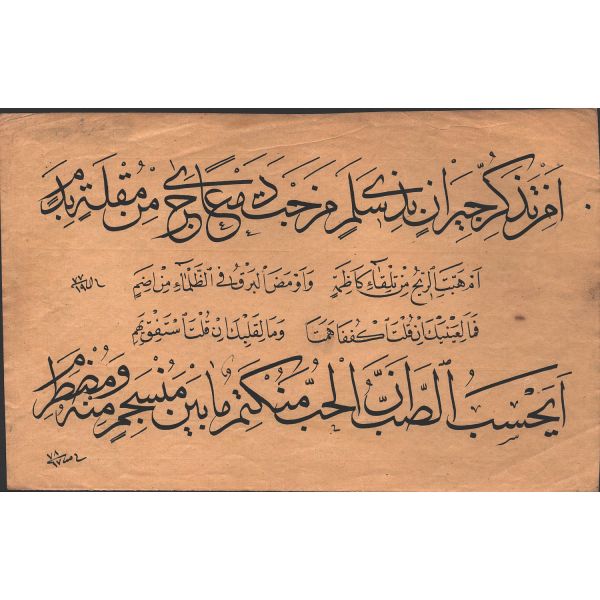 اَمِنْ تَذَكُّرِ جِيرَانٍ بِذِي سَلَمٍ مَزَجْتَ دَمْعًا جَرَى مِنْ مُقْلَةٍ بِدَمِ
اَمْ هَبَّتِ الرِّيحُ مِنْ تِلْقَاءِ كَاظِمَةٍ وَاَوْمَضَ الْبَرْقُ فِي الظَّلْمَاءِ مِنْ اِضَمِ
فَمَا لِعَيْنَيْكَ اِنْ قُلْتَ اكْفُفَا هَمَتَا وَمَا لِقَلْبِكَ اِنْ قُلْتَ اسْتَفِقْ يَهِمِ
اَيَحْسَبُ الصَّبُّ اَنَّ الْحُبَّ مُنْكَتِمٌ مَا بَيْنَ مُنْسَجِمٍ مِنْهُ وَمُضْطَرِمِ